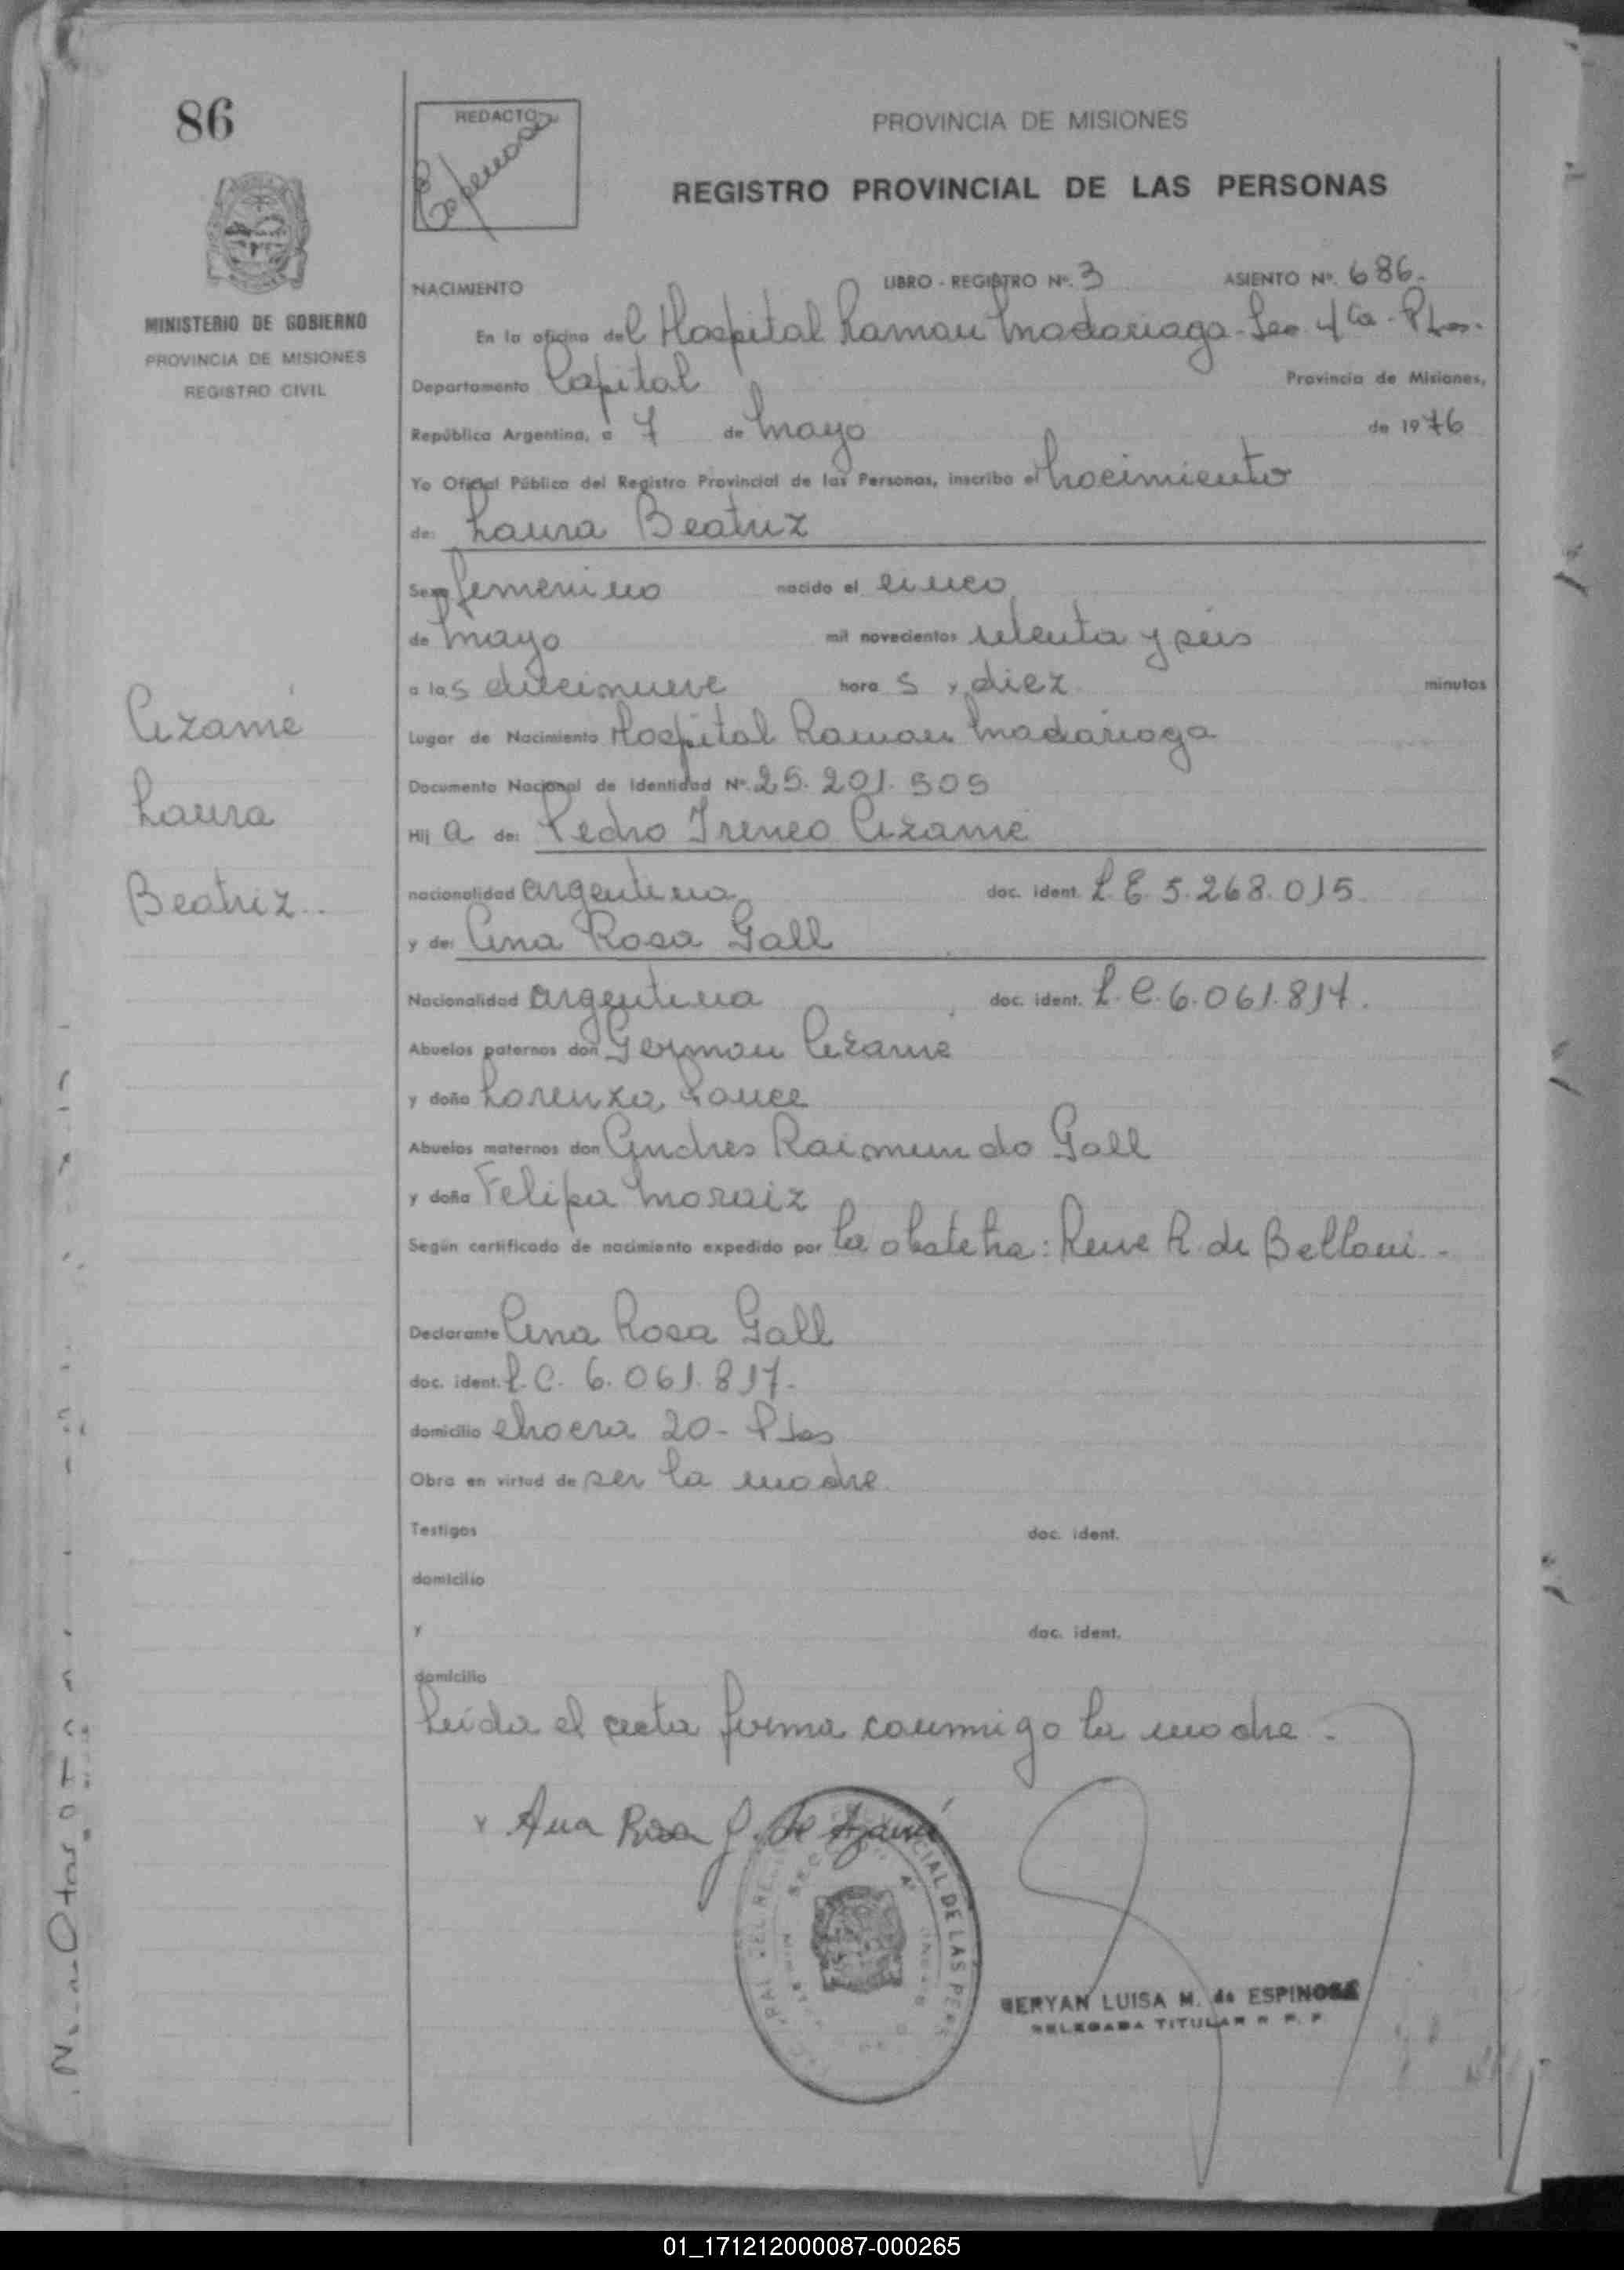 86
REDACTO
Espinosa
PROVINCIA DE MISIONES
REGISTRO PROVINCIAL DE LAS PERSONAS
MINISTERIO DE GOBIERNO
PROVINCIA DE MISIONES
REGISTRO CIVIL
NACIMIENTO LIBRO - REGISTRO Nº. 3 ASIENTO Nº. 686.
En la oficina del Hospital Ramon Madariaga - Sec 4ta - Pdas.
Departamento Capital Provincia de Misiones,
República Argentina, a 7 de Mayo de 1976
Yo Oficial Público del Registro Provincial de las Personas, inscribo el Nacimiento
de: Laura Beatriz
Sexo femenino nacido el cinco
de Mayo mil novecientos setenta y seis
a las diecinueve horas y diez minutos
Lugar de Nacimiento Hospital Ramon Madariaga
Documento Nacional de Identidad Nº. 25.201.505
Hij a de: Pedro Ireneo Azamé
nacionalidad argentina doc. ident. L.E 5.268.015
y de: Ana Rosa Gall
Nacionalidad argentina doc. ident. L.C. 6.061.817.
Abuelos paternos don German Azamé
y doña Lorenza
Abuelos maternos don Andres Raimundo Gall
y doña Felipa Moraiz
Según certificado de nacimiento expedido por la obstetra: Rene R. de Belloni -
Declarante Ana Rosa Gall
doc. ident. L.C. 6.061.817-
domicilio chacra 20 - Pdas
Obra en virtud de ser la madre
Testigos doc. ident.
domicilio
y doc. ident.
domicilio
Leida el acta firma conmigo la madre -
Ana Rosa G. de Azamé
Azamé
Laura
Beatriz..
CIAL DE LAS PERS
GERYAN LUISA M. de ESPINOSA
DELEGADA TITULAR R P. P
01_171212000087-000265